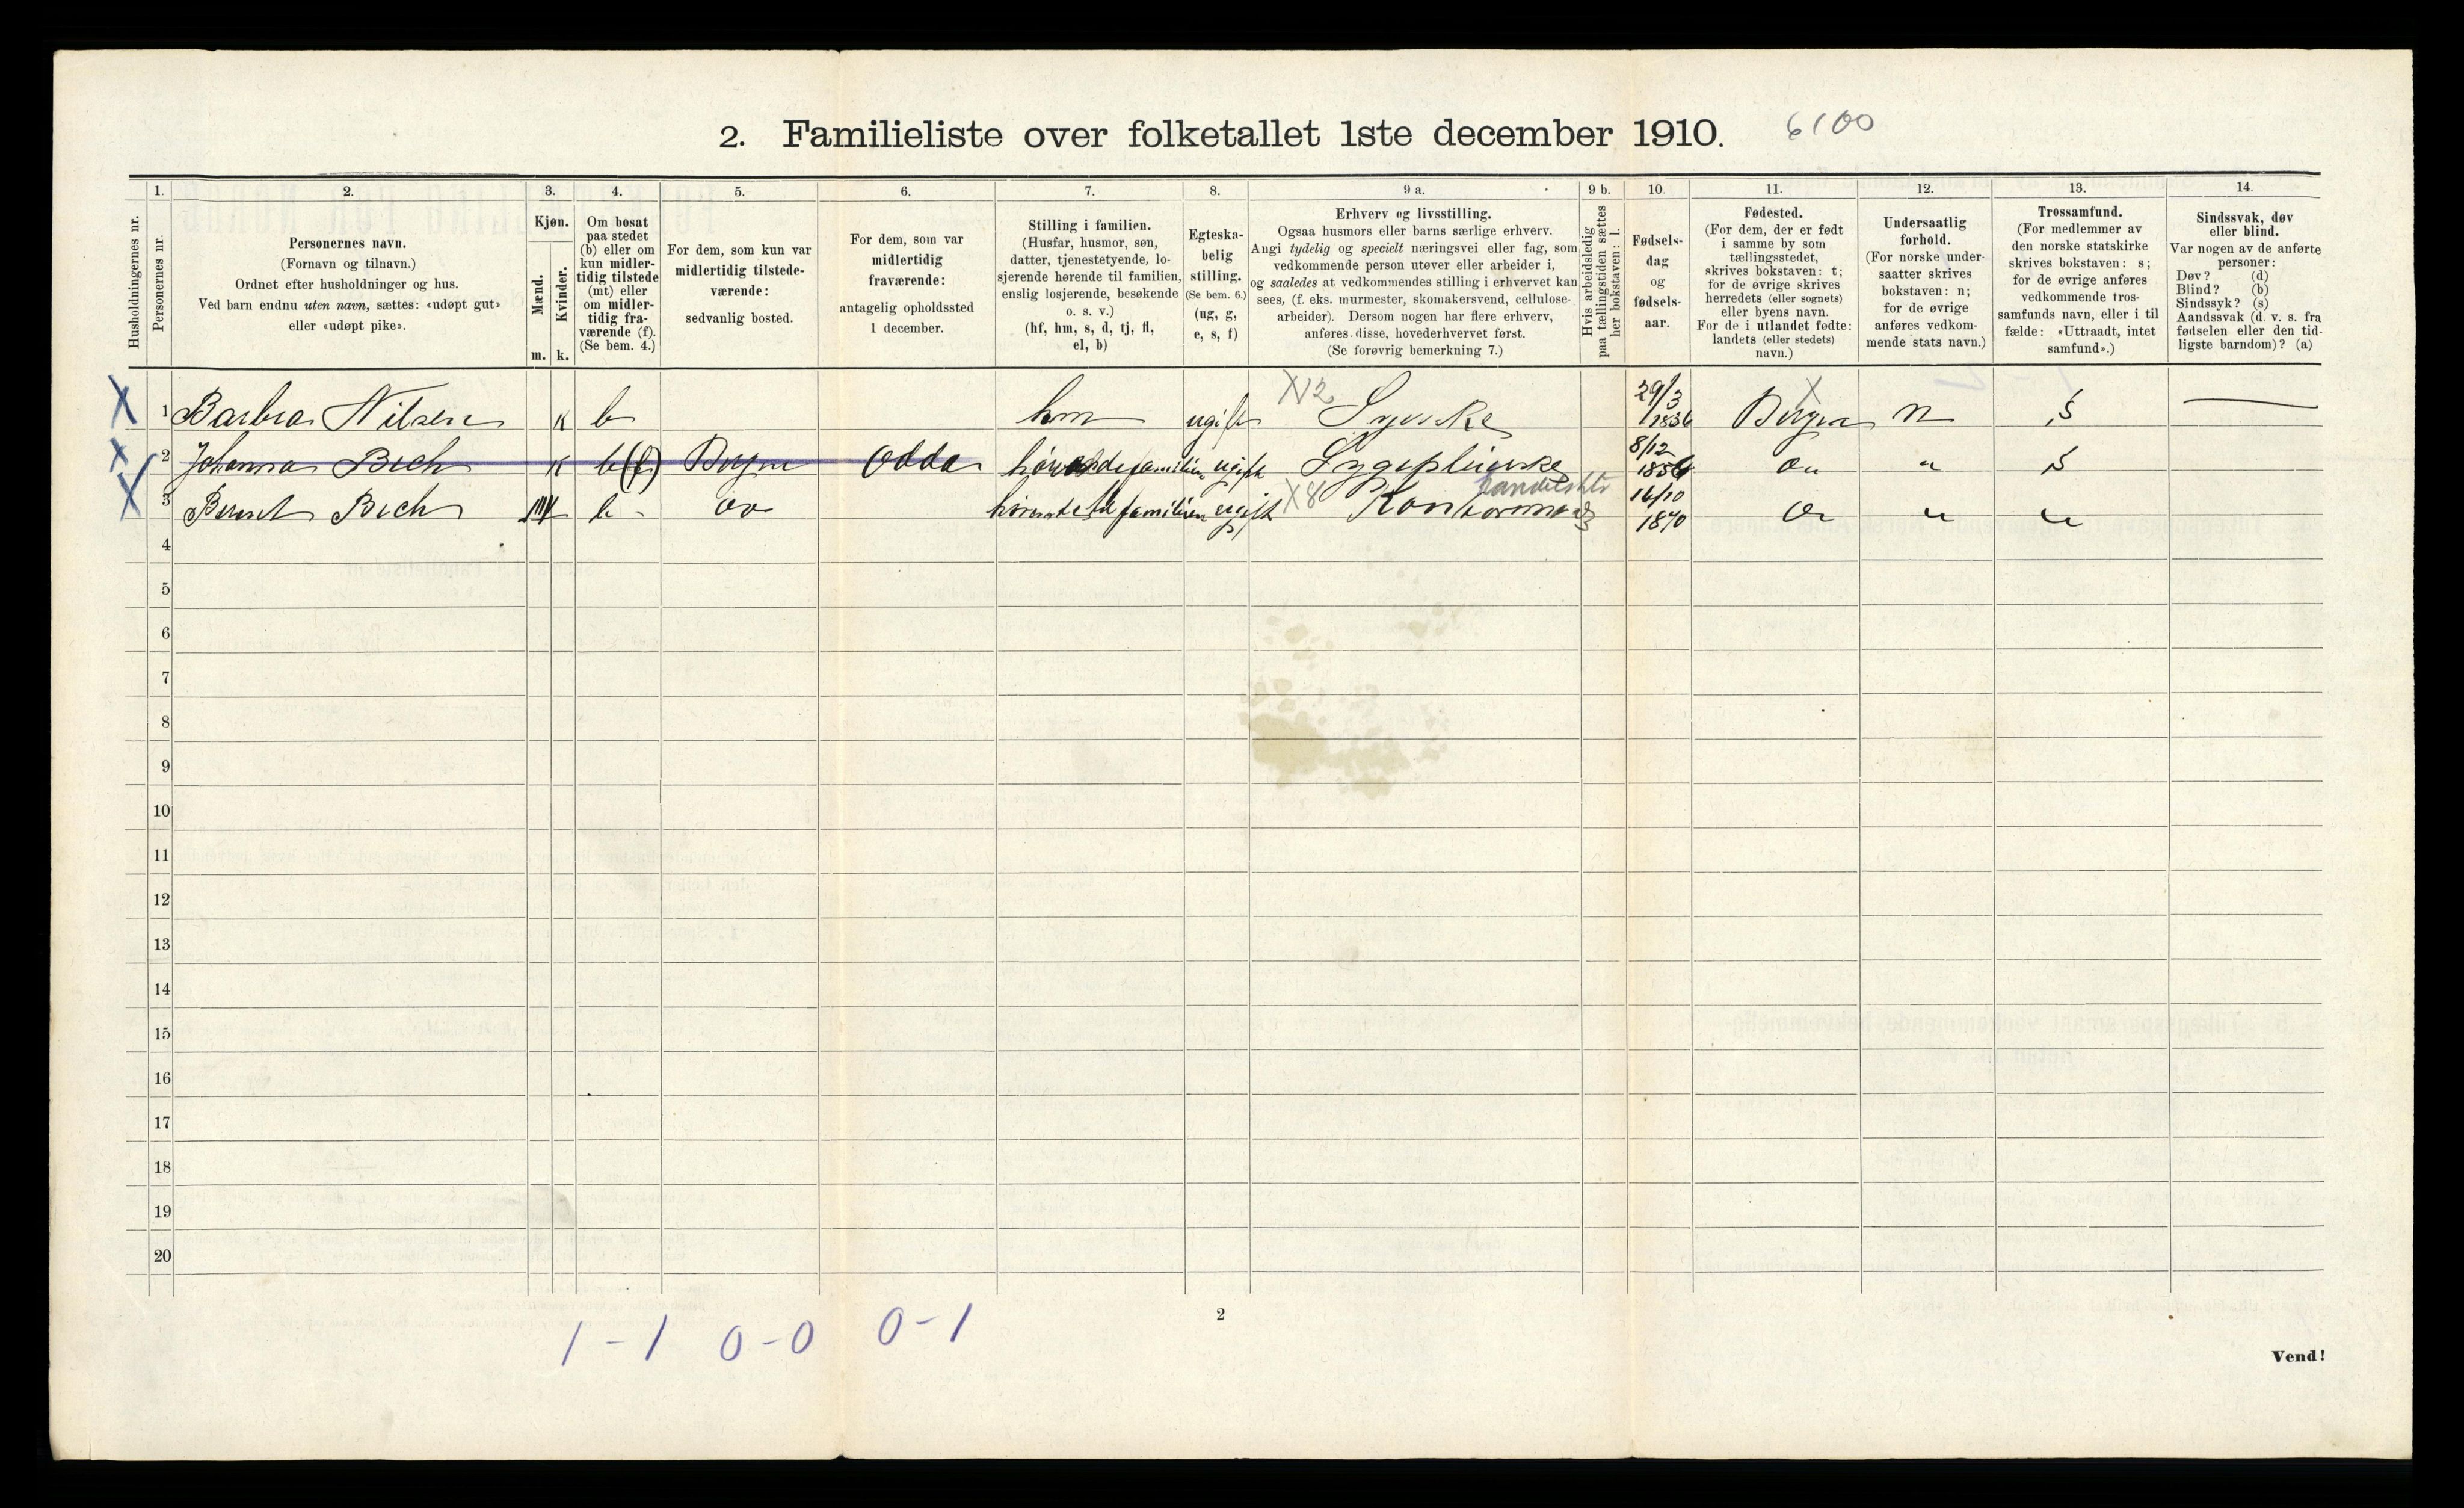 2. Familieliste over folketallet 1ste december 1910. 6100
1. 2. 3. 4. 5. 6. 7. 8. 9 a. 9 b. 10. 11. 12. 13. 14.
Husholdningernes nr.
Personernes nr.
Personernes navn.
(Fornavn og tilnavn.)
Ordnet efter husholdninger og hus.
Ved barn endnu uten navn, sættes: «udøpt gut»
eller «udøpt pike».
Kjøn.
Mænd.
Kvinder.
m. k.
Om bosat
paa stedet
(b) eller om
kun midler-
tidig tilstede
(mt) eller
om midler-
tidig fra-
værende (f).
(Se bem. 4.)
For dem, som kun var
midlertidig tilstede-
værende:
sedvanlig bosted.
For dem, som var
midlertidig
fraværende:
antagelig opholdssted
1 december.
Stilling i familien.
(Husfar, husmor, søn,
datter, tjenestetyende, lo-
sjerende hørende til familien,
enslig losjerende, besøkende
o. s. v.)
(hf, hm, s, d, tj, fl,
el, b)
Egteska-
belig
stilling.
(Se bem. 6.)
(ug, g,
e, s, f)
Erhverv og livsstilling.
Ogsaa husmors eller barns særlige erhverv.
Angi tydelig og specielt næringsvei eller fag, som
vedkommende person utøver eller arbeider i,
og saaledes at vedkommendes stilling i erhvervet kan
sees, (f. eks. murmester, skomakersvend, cellulose-
arbeider). Dersom nogen har flere erhverv,
anføres disse, hovederhvervet først.
(Se forøvrig bemerkning 7.)
Hvis arbeidsledig
paa tællingstiden sættes
her bokstaven: l.
Fødsels-
dag
og
fødsels-
aar.
Fødested.
(For dem, der er født
i samme by som
tællingsstedet,
skrives bokstaven: t;
for de øvrige skrives
herredets (eller sognets)
eller byens navn.
For de i utlandet fødte:
landets (eller stedets)
navn.)
Undersaatlig
forhold.
(For norske under-
saatter skrives
bokstaven: n;
for de øvrige
anføres vedkom-
mende stats navn.)
Trossamfund.
(For medlemmer av
den norske statskirke
skrives bokstaven: s;
for de øvrige anføres
vedkommende tros-
samfunds navn, eller i til
fælde: «Uttraadt, intet
samfund».)
Sindssvak, døv
eller blind.
Var nogen av de anførte
personer:
Døv? (d)
Blind? (b)
Sindssyk? (s)
Aandssvak (d. v. s. fra
fødselen eller den tid-
ligste barndom)? (a)
X 1 Barbra Nilsen k b hm ugift X12 Syerske 29/3 1836 X Bergen n s —
X 2 Johanna Bech k b(f) Bergen Odda familien ugift Sygepleierske 8/12 " s
X 3 Bernt Bech b - familien ugift X8 Kontormand 14/10 1870 " "
4
5
6
7
8
9
10
11
12
13
14
15
16
17
18
19
20
2
1 - 1 0 - 0 0 - 1
Vend!